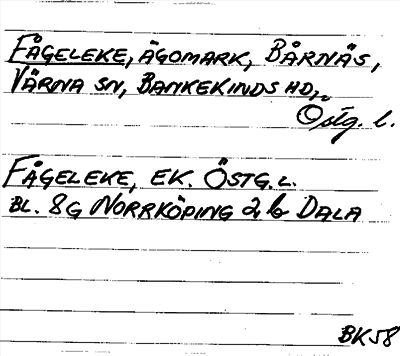 FÅGELEKE, ÄGOMARK, BÅRNÄS,
VÄRNA SN, BANKEKINDS HD,
Östg. l.
FÅGELEKE, EK. ÖSTG. L.
BL. 8G NORRKÖPING 2b DALA
BK58